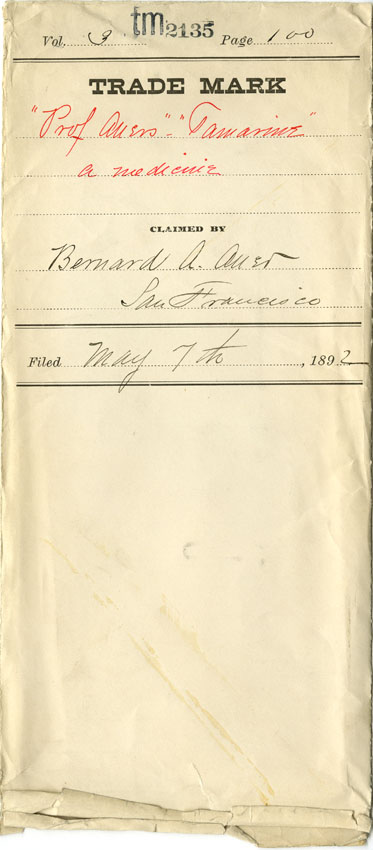 tm 2135
Vol. 3 Page 100
TRADE MARK
"Prof Auers" - "Tamarine"
a medicine
CLAIMED BY
Bernard A. Auer
San Francisco
Filed May 7th, 1892